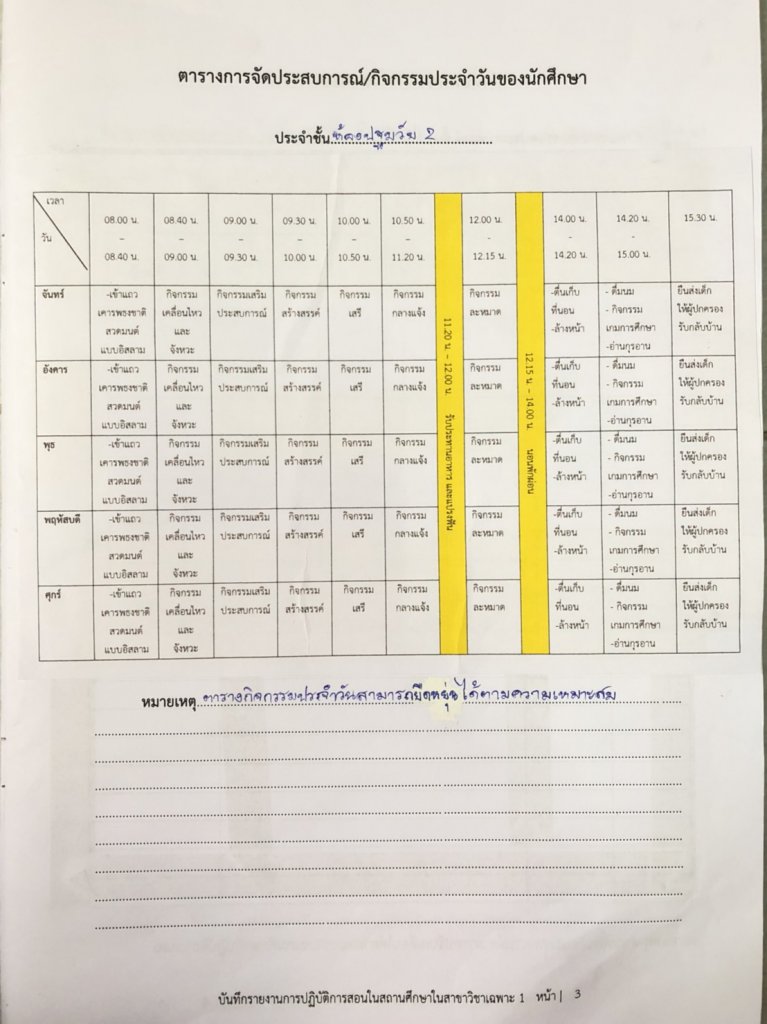 ตารางการจัดประสบการณ์/กิจกรรมประจำวันของนักศึกษา
ประจำชั้น ห้องปฐมวัย 2
เวลา
วัน
08.00 น. – 08.40 น.
08.40 น. – 09.00 น.
09.00 น. – 09.30 น.
09.30 น. – 10.00 น.
10.00 น. – 10.50 น.
10.50 น. – 11.20 น.
11.20 น – 12.00 น. รับประทานอาหาร และแปรงฟัน
12.00 น. – 12.15 น.
12.15 น – 14.00 น. นอนพักผ่อน
14.00 น. - 14.20 น.
14.20 น. - 15.00 น.
15.30 น.
จันทร์
-เข้าแถว เคารพธงชาติ สวดมนต์ แบบอิสลาม
กิจกรรม เคลื่อนไหว และ จังหวะ
กิจกรรมเสริม ประสบการณ์
กิจกรรม สร้างสรรค์
กิจกรรม เสรี
กิจกรรม กลางแจ้ง
กิจกรรม ละหมาด
-ตื่นเก็บ ที่นอน -ล้างหน้า
- ดื่มนม - กิจกรรม เกมการศึกษา -อ่านกุรอาน
ยืนส่งเด็ก ให้ผู้ปกครอง รับกลับบ้าน
อังคาร
-เข้าแถว เคารพธงชาติ สวดมนต์ แบบอิสลาม
กิจกรรม เคลื่อนไหว และ จังหวะ
กิจกรรมเสริม ประสบการณ์
กิจกรรม สร้างสรรค์
กิจกรรม เสรี
กิจกรรม กลางแจ้ง
กิจกรรม ละหมาด
-ตื่นเก็บ ที่นอน -ล้างหน้า
- ดื่มนม - กิจกรรม เกมการศึกษา -อ่านกุรอาน
ยืนส่งเด็ก ให้ผู้ปกครอง รับกลับบ้าน
พุธ
-เข้าแถว เคารพธงชาติ สวดมนต์ แบบอิสลาม
กิจกรรม เคลื่อนไหว และ จังหวะ
กิจกรรมเสริม ประสบการณ์
กิจกรรม สร้างสรรค์
กิจกรรม เสรี
กิจกรรม กลางแจ้ง
กิจกรรม ละหมาด
-ตื่นเก็บ ที่นอน -ล้างหน้า
- ดื่มนม - กิจกรรม เกมการศึกษา -อ่านกุรอาน
ยืนส่งเด็ก ให้ผู้ปกครอง รับกลับบ้าน
พฤหัสบดี
-เข้าแถว เคารพธงชาติ สวดมนต์ แบบอิสลาม
กิจกรรม เคลื่อนไหว และ จังหวะ
กิจกรรมเสริม ประสบการณ์
กิจกรรม สร้างสรรค์
กิจกรรม เสรี
กิจกรรม กลางแจ้ง
กิจกรรม ละหมาด
-ตื่นเก็บ ที่นอน -ล้างหน้า
- ดื่มนม - กิจกรรม เกมการศึกษา -อ่านกุรอาน
ยืนส่งเด็ก ให้ผู้ปกครอง รับกลับบ้าน
ศุกร์
-เข้าแถว เคารพธงชาติ สวดมนต์ แบบอิสลาม
กิจกรรม เคลื่อนไหว และ จังหวะ
กิจกรรมเสริม ประสบการณ์
กิจกรรม สร้างสรรค์
กิจกรรม เสรี
กิจกรรม กลางแจ้ง
กิจกรรม ละหมาด
-ตื่นเก็บ ที่นอน -ล้างหน้า
- ดื่มนม - กิจกรรม เกมการศึกษา -อ่านกุรอาน
ยืนส่งเด็ก ให้ผู้ปกครอง รับกลับบ้าน
หมายเหตุ ตารางกิจกรรมประจำวันสามารถยืดหยุ่นได้ตามความเหมาะสม
บันทึกรายงานการปฏิบัติการสอนในสถานศึกษาในสาขาวิชาเฉพาะ 1 หน้า | 3